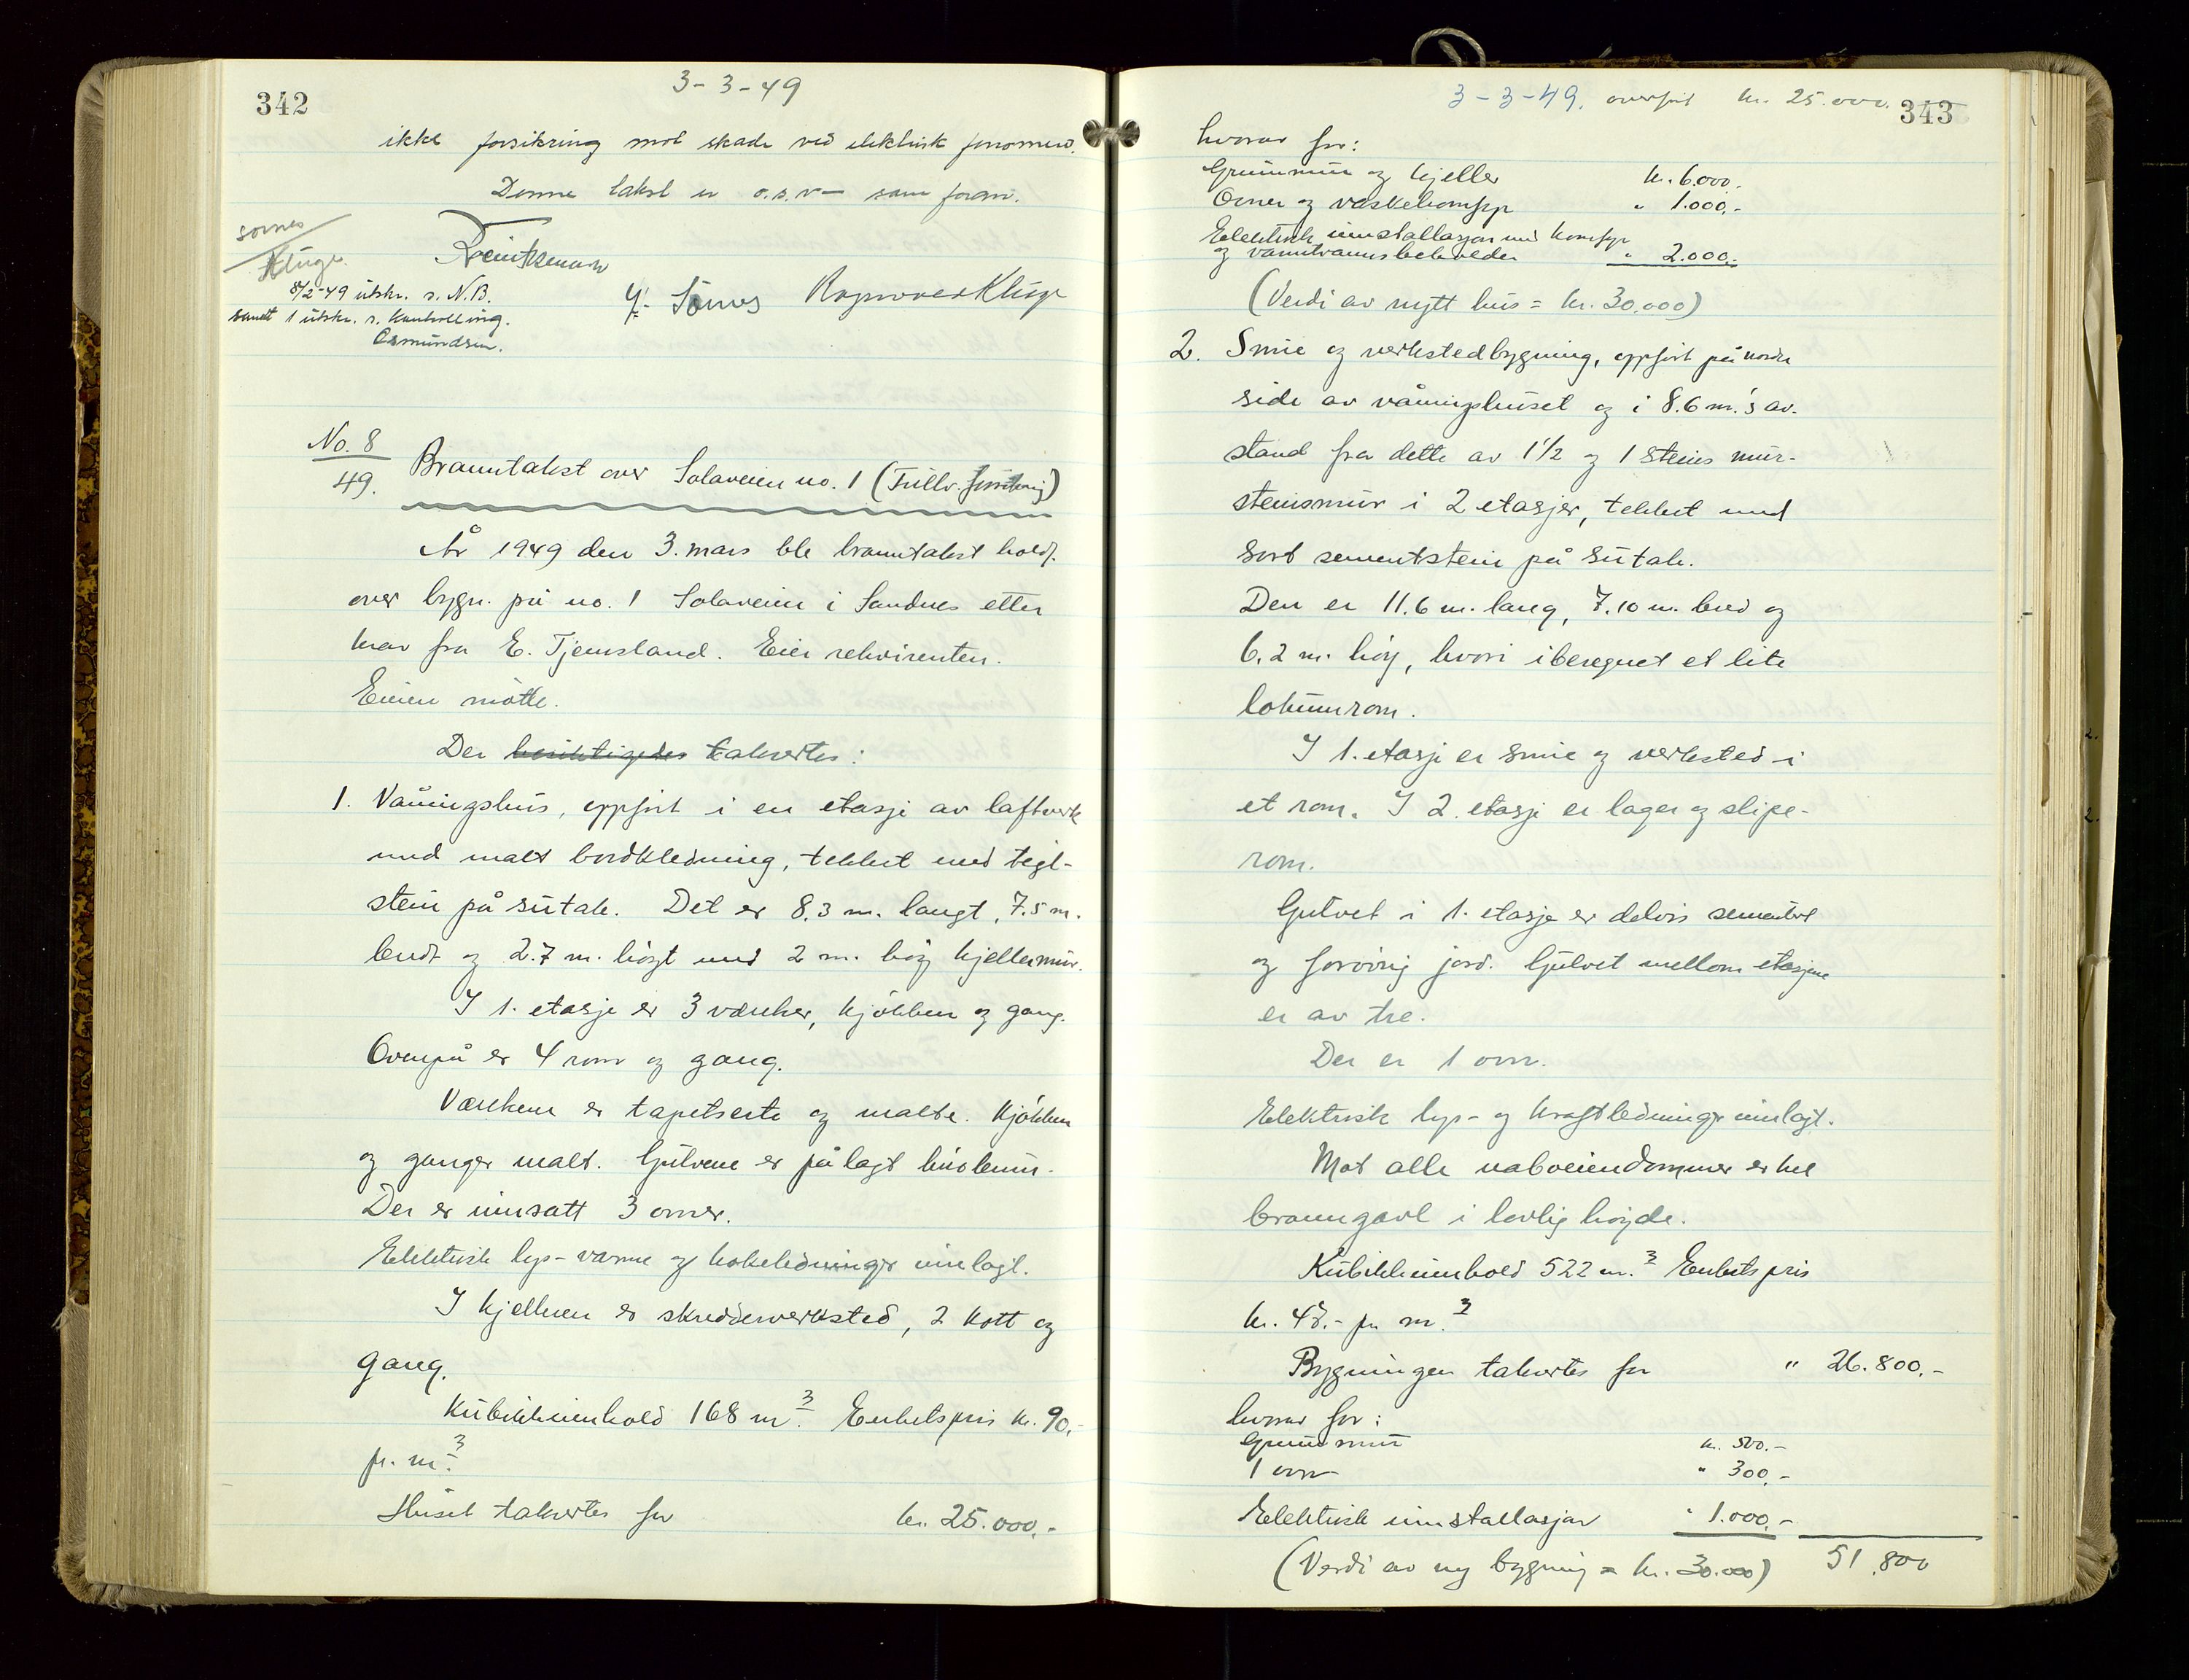 342
3-3-49
ikke forsikring mot skade ved elektrisk fenomen.
Denne takst er o.s.v— som foran.
Sømes
Kluge.
8/2-49 utskr. s. N.B.
samt 1 utskr. s. Kontrolling.
Osmundsen.
Y. Sömes Ragnvald Kluge
No. 8
49.
Branntakst over Solaveien no. 1 (Fullv. forsikring)
År 1949 den 3. mars ble branntakst holdt
over bygn. på no. 1 Solaveien i Sandnes etter
krav fra E. Tjemsland. Eier rekvirenten.
Eieren møtte.
Der besiktigedes takertes:
1. Våningshus, oppført i en etasje av laftverk
med malt bordkledning, tekket med tegl-
stein på sutak. Det er 8.3 m. langt, 7.5 m.
bredt og 2.7 m. høgt med 2 m. høg kjellermur.
I 1. etasje er 3 værelser, kjøkken og gang.
Ovenpå er 4 rom og gang.
Værelsene er tapetserte og malte. Kjøkken
og ganger malt. Gulvene er pålagt linoleum.
Der er innsatt 3 ovner.
Elektrisk lys- varme og kokeledninger innlagt.
I kjelleren er skredderverksted, 2 kott og
gang.
Kubikkinnhold 168 m.3 Enhetspris kr. 90,-
pr. m.3
Huset takertes for kr. 25.000,-
3-3-49. overført kr. 25.000. 343
hvorav for:
Grunnmur og kjeller kr. 6.000.
Ovner og vaskekomfyr " 1.000,-
Elektrisk innstallasjon med komfyr
og varmtvannsbeholder " 2.000.-
(Verdi av nytt hus = kr. 30.000)
2. Smie og verkstedbygning, oppført på nordre
side av våningshuset og i 8.6 m.'s av-
stand fra dette av 1½ og 1 steins mur-
steinsmur i 2 etasjer, tekket med
sort sementstein på sutak.
Den er 11.6 m. lang, 7.10 m. bred og
6.2 m. høy, hvori iberegnet et lite
lokumrom.
I 1. etasje er smie og verksted i
et rom. I 2. etasje er lager og slipe-
rom.
Gulvet i 1. etasje er delvis sementert
og forøvrig jord. Gulvet mellom etasjene
er av tre.
Der er 1 ovn.
Elektrisk lys- og kraftledninger innlagt.
Mot alle naboeiendommer er hel
branngavl i lovlig høyde.
Kubikkinnhold 522 m.3 Enhetspris
kr. 48.- pr. m.3
Bygningen takertes for " 26.800,-
hvorav for:
Grunnmur kr. 500.-
1 ovn " 300,-
Elektrisk innstallasjon " 1.000,-
(Verdi av ny bygning = kr. 30.000) 51.800